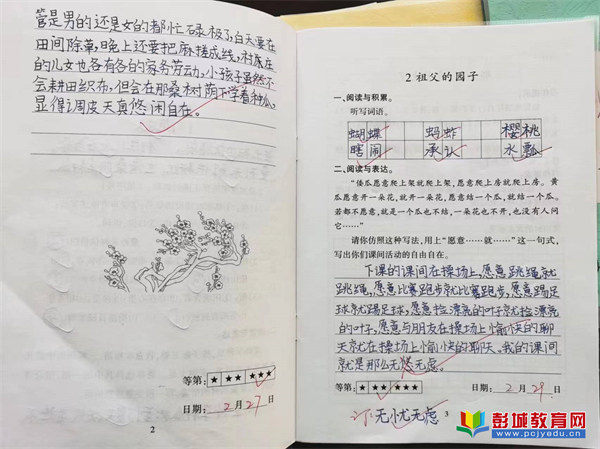 管是男的还是女的都忙碌极了,白天要在
田间除草,晚上还要把麻搓成线,村庄
的儿女也各有各的家务劳动,小孩子虽然不
会耕田织布,但会在那桑树荫下学着种瓜,
显得调皮天真悠闲自在。
等第: ★ ★★ ★★★
日期: 2 月 27 日
2
2 祖父的园子
一、阅读与积累。
听写词语。
蝴蝶 蚂蚱 樱桃
瞎闹 承认 水瓢
二、阅读与表达。
“倭瓜愿意爬上架就爬上架,愿意爬上房就爬上房。黄
瓜愿意开一朵花,就开一朵花,愿意结一个瓜,就结一个瓜。
若都不愿意,就是一个瓜也不结,一朵花也不开,也没有人问
它……”
请你仿照这种写法,用上“愿意……就……”这一句式,
写出你们课间活动的自由自在。
下课的课间在操场上,愿意跳绳就
跳绳,愿意比赛跑步就比赛跑步,愿意踢足
球就踢足球,愿意捡漂亮的叶子就捡漂亮
的叶子,愿意与朋友在操场上愉快的聊
天就在操场上愉快的聊天。我的课间
就是那么无悠无虑。
等第: ★ ★★ ★★★
日期: 2 月 29 日
订 无忧无虑
3
彭城教育网
www.pcjyedu.cn